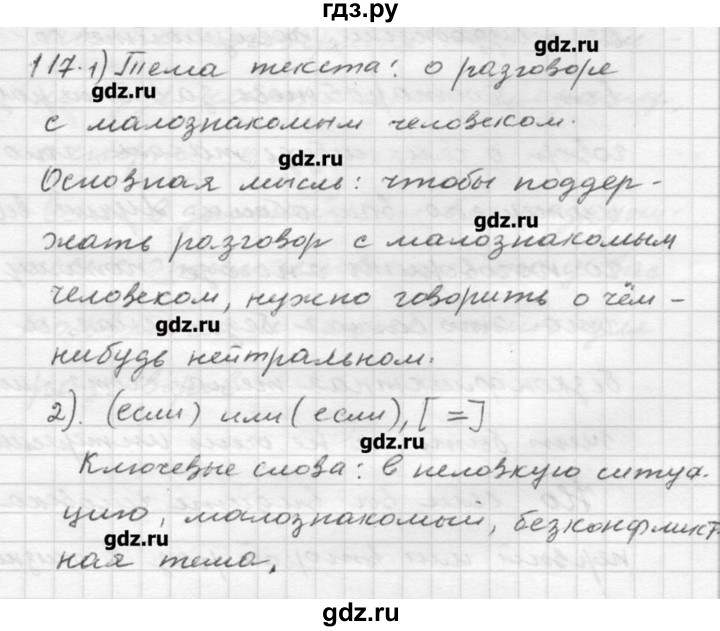 гдз.ру
117.1) Тема текста: о разговоре
gdz.ru
gdz.ru
с малознакомым человеком.
gdz.ru
Основная мысль: чтобы поддер-
gdz.ru
жать разговор с малознакомым
человеком, нужно говорить о чём-
gdz.ru
нибудь нейтральном.
2). (если) или (если), [ = ]
gdz.ru
Ключевые слова: в неловкую ситуа-
цию, малознакомый, безконфликт
gdz.ru
ная тема.
gdz.ru